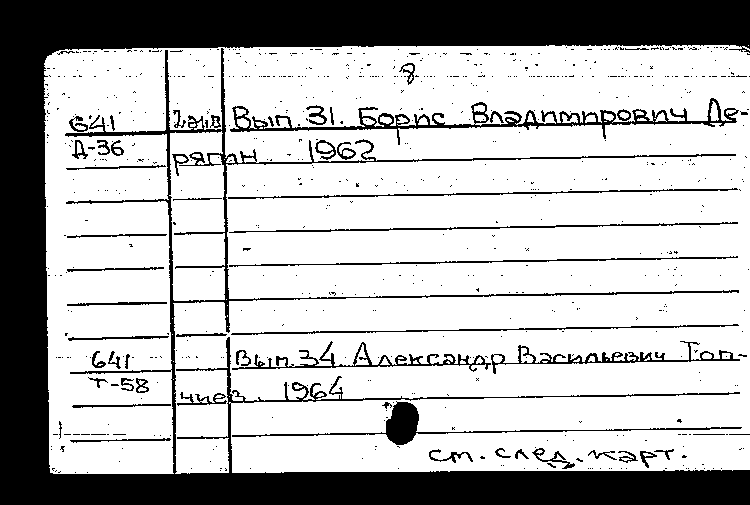 8
641 2экз Вып. 31. Борис Владимирович Де-
Д-36 рягин. 1962
641 Вып. 34. Александр Васильевич Топ-
Т-58 чиев. 1964
см. след. карт.